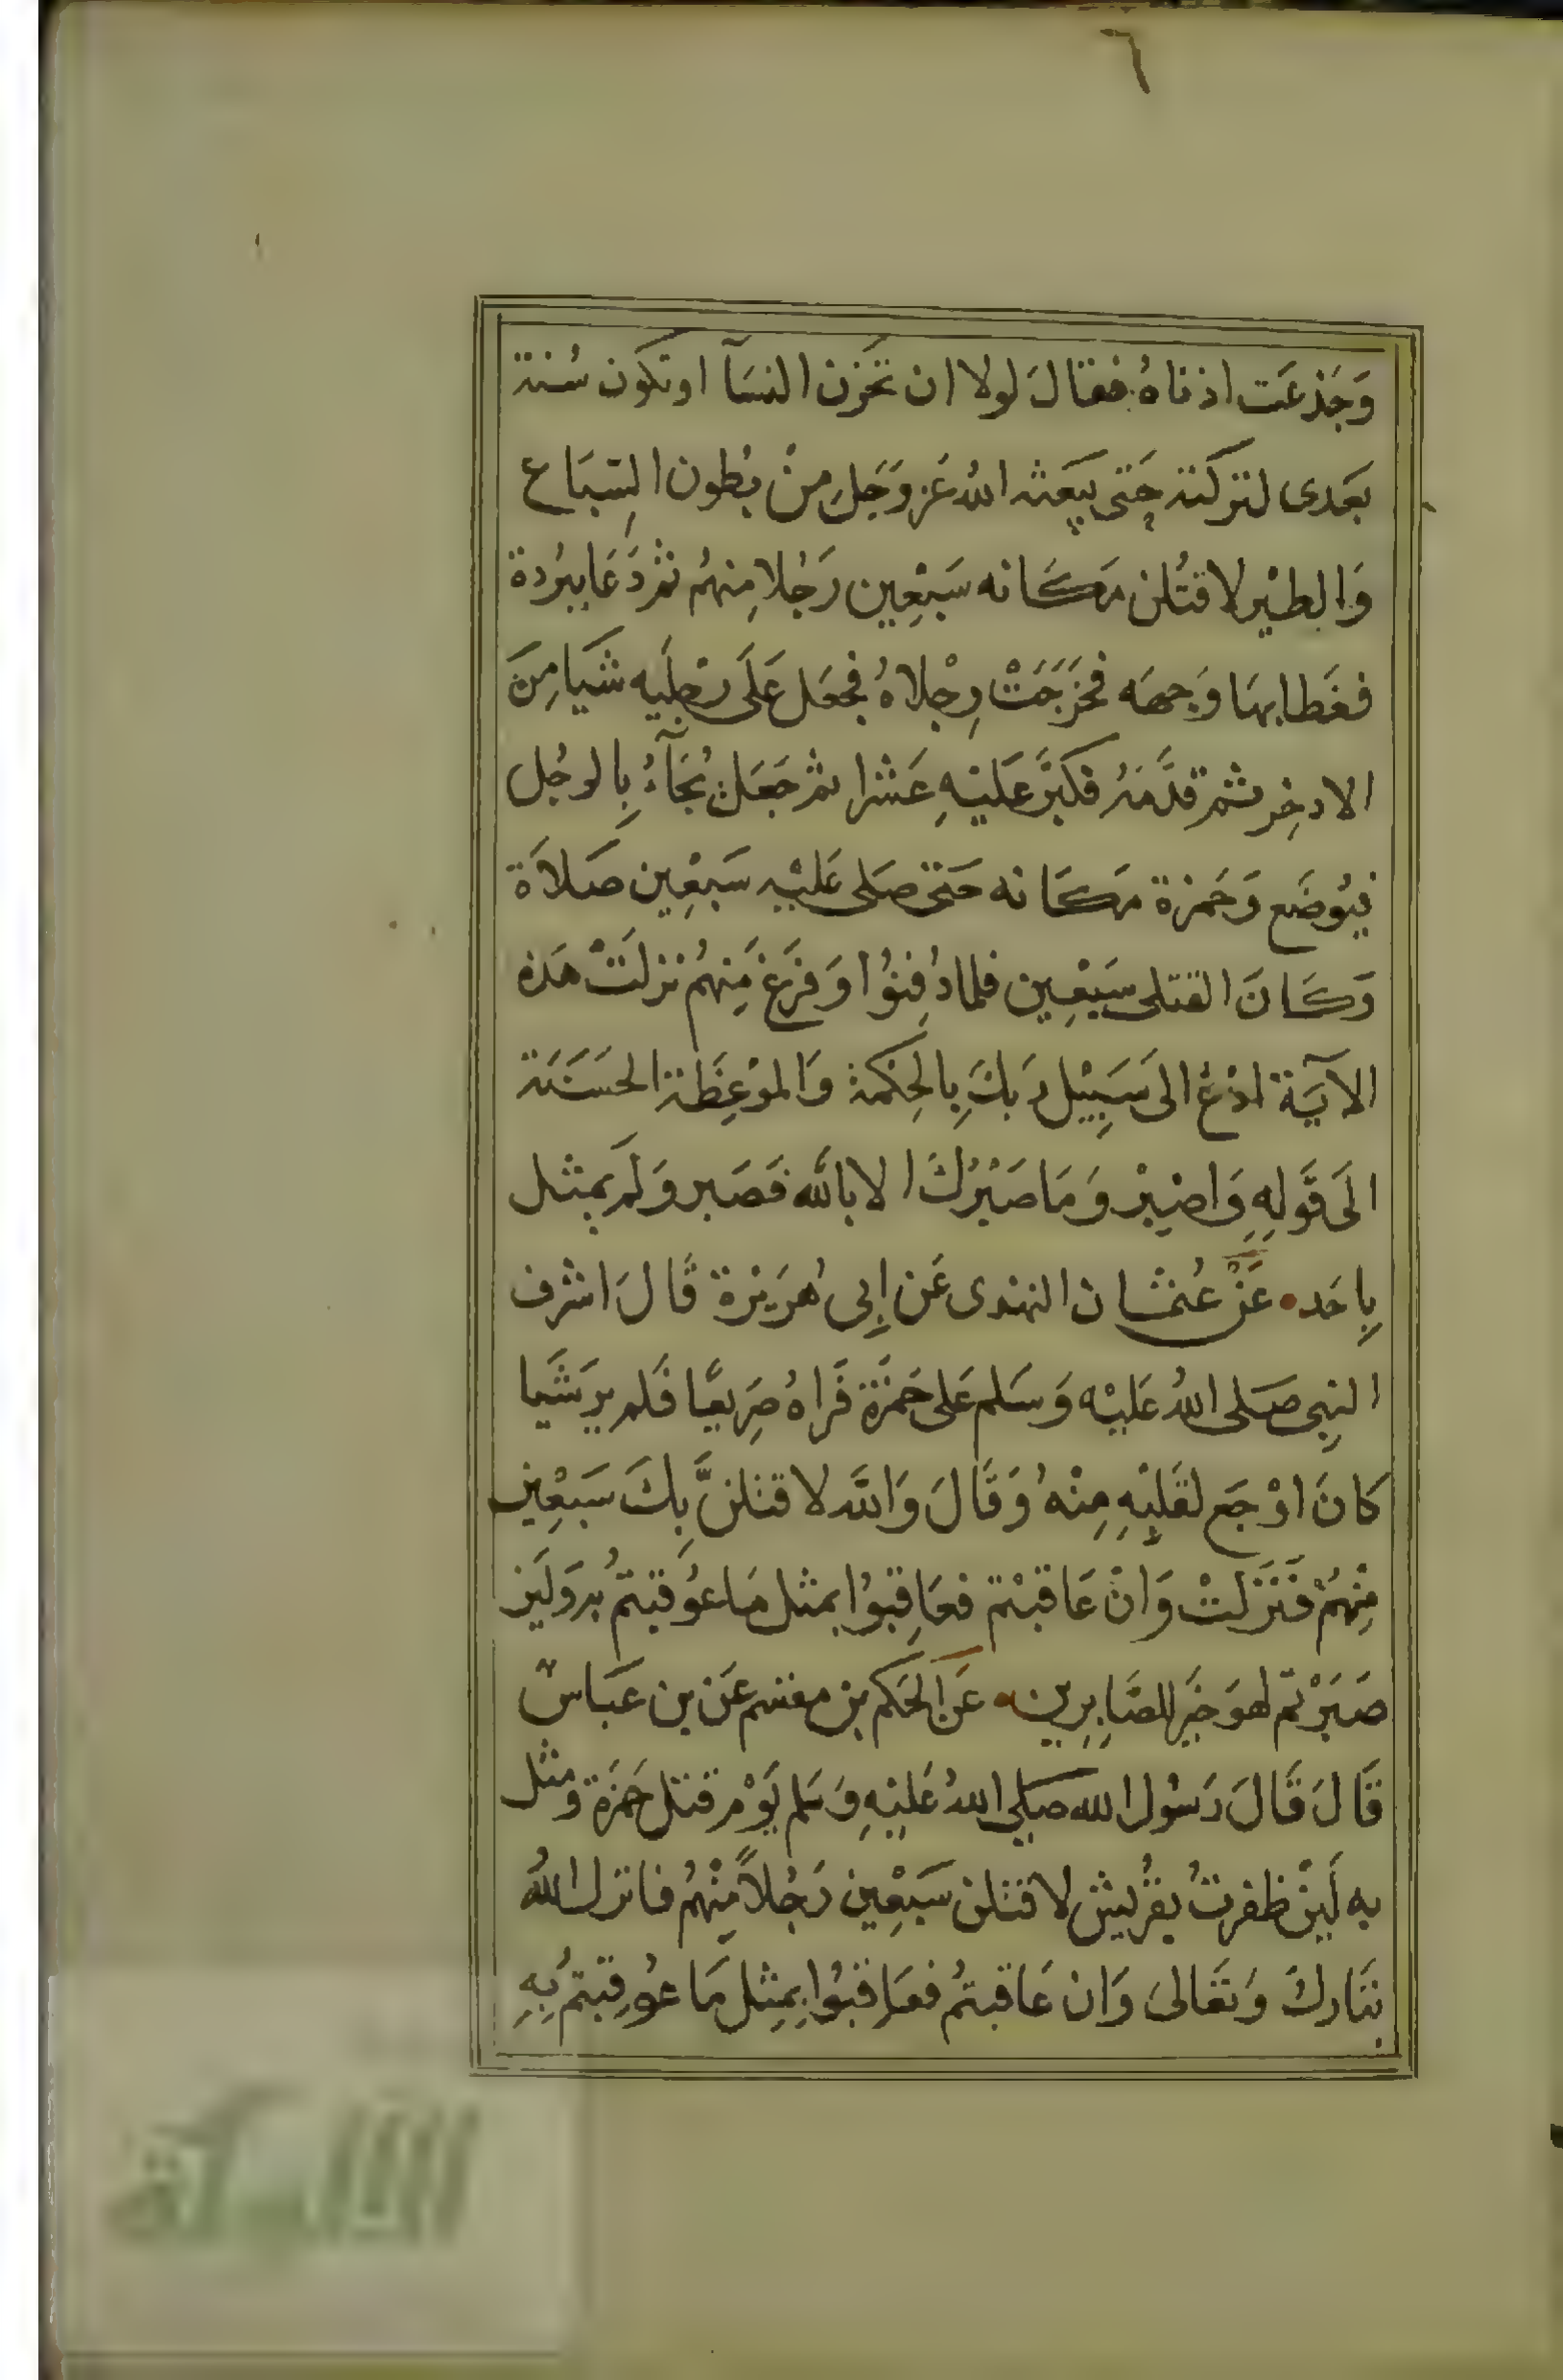 ٦
وَجَذعَت اذناهُ فقالَ لولا ان تحزن النسَآ او تكون سُنة
بعَدى لتركته حَتى يبعَثه اللهُ عَز وَجَل مِنْ بُطون السِّبَاع
وَالطيْر لاقتُلن مَكانه سَبْعِين رَجُلا مِنهُم ثم دَعَا ببُردة
فغَطا بهَا وَجهَه فخَرَجَتْ رِجْلاهُ فجعَل عَلَى رجْلَيه شَيا مِنَ
الادخِر ثم قدَّمَهُ فكبَّر عَليْهِ عَشْرا ثم جَعَل يُجَآءُ بِالرجُل
فيُوضَع وَحَمزة مَكَانه حَتى صَلى عَليْه سَبْعِين صَلاَة
وَكَانَ القتلى سَبْعِين فلما دُفِنُوا وَفرَغ مِنهُم نزلَتْ هَذه
الآيَة ادْعُ الى سَبِيْل رَبكَ بِالحِكْمة وَالموْعِظة الحَسَنَة
الَى قَولِهِ وَاصْبِرْ وَمَا صَبْرُكَ الا بالله فَصَبر وَلَم يمثل
بِاحَد۰ عَنْ عُثمَان النهدى عَن ابِى هُرَيْرة قالَ اشرف
النبِى صَلى اللهُ عَليْه وَسَلم عَلى حَمزَة فَراهُ صَرِيعًا فَلم ير شَيا
كانَ اوْجَع لقَلبِهِ مِنْهُ وَقَالَ وَالله لاقتلنَّ بِكَ سَبْعِين
مِنْهُمْ فَنَزَلَتْ وَانْ عَاقبْتم فعَاقِبُوا بمثل مَا عُوقبتُم به وَلَين
صَبَرْتم لهوَ خَير للصَّابِرِين۰ عَن الحَكم بن مقسم عَن بن عَبَاس
قَالَ قَالَ رَسُول الله صَلى اللهُ عَليْهِ وَسَلم يَوْم قتل حَمزَة وَمثل
به لَيِنْ ظفرتُ بقرُيش لاقتلن سَبْعِين رَجُلاً مِنْهُم فانزل اللهُ
تبَاركَ وَتعَالىَ وَان عَاقبتُم فعَاقبُوا بِمِثل مَا عُوقِبتم بِهِ
الألوكة